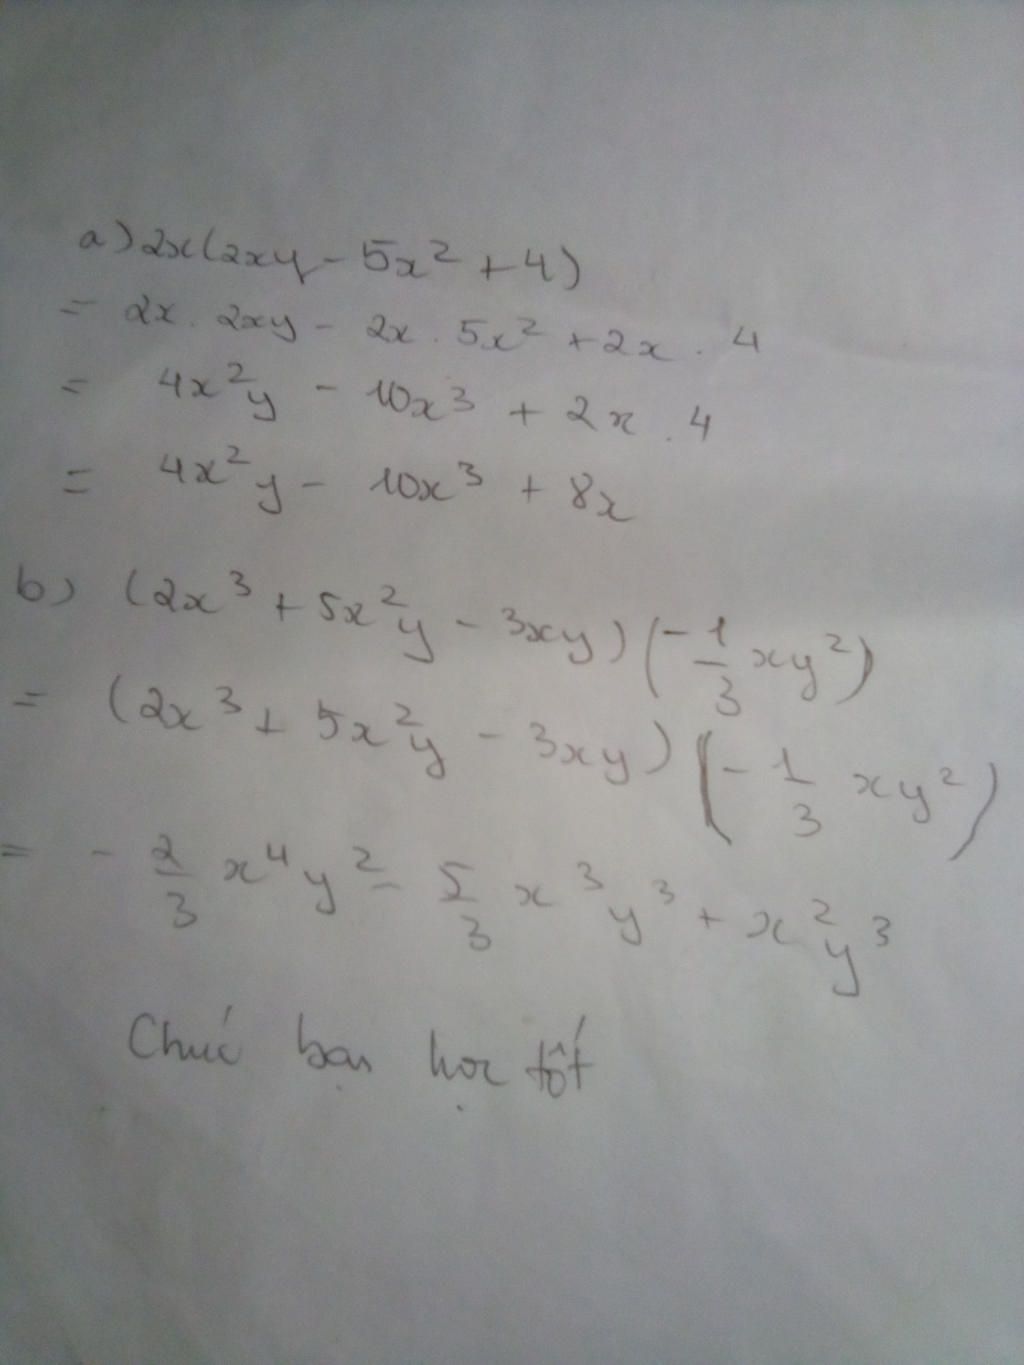 a) 2x(2xy - 5x² + 4)
= 2x . 2xy - 2x . 5x² + 2x . 4
= 4x²y - 10x³ + 2x . 4
= 4x²y - 10x³ + 8x
b) (2x³ + 5x²y - 3xy) (-1/3 xy²)
= (2x³ + 5x²y - 3xy) (-1/3 xy²)
= -2/3 x⁴y² - 5/3 x³y³ + x²y³
Chúc bạn học tốt